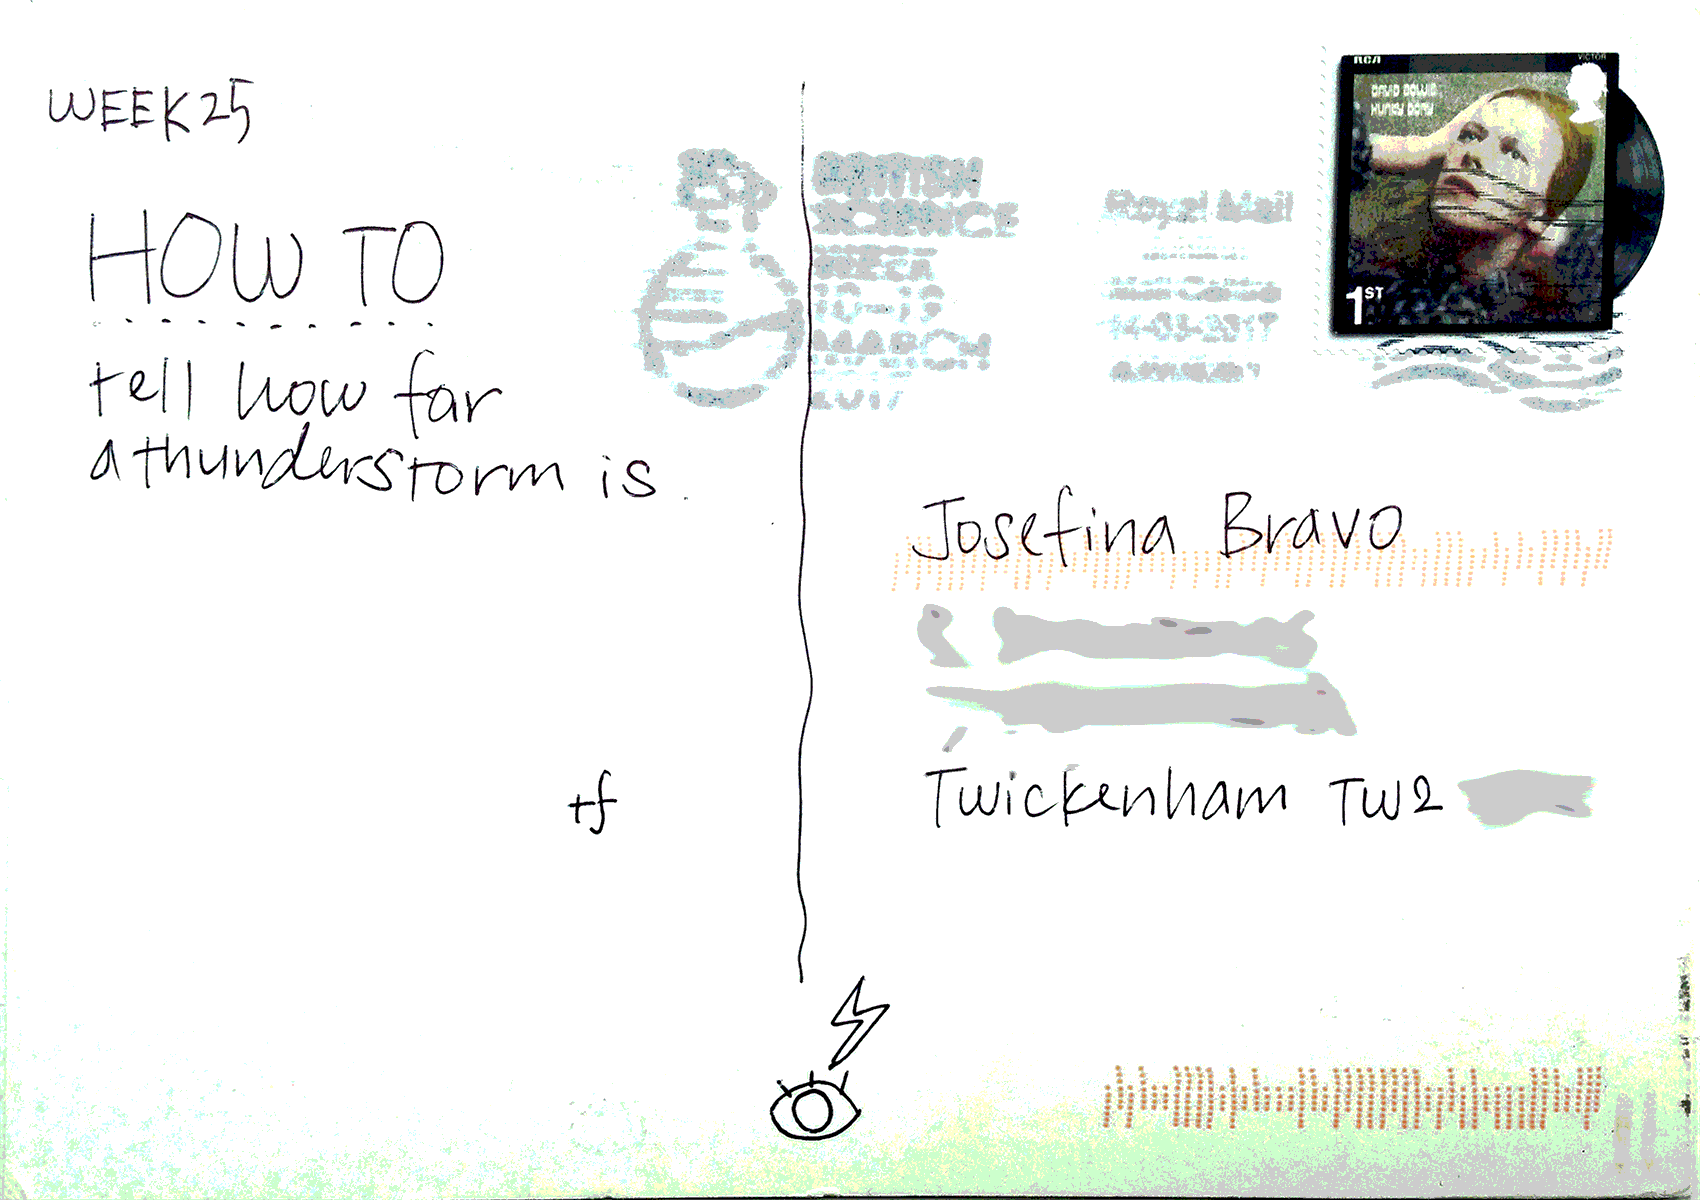 WEEK 25
HOW TO
tell how far
a thunderstorm is.
tf
BRITISH
SCIENCE
WEEK
10-19
MARCH
2017
Royal Mail
RCA
VICTOR
DAVID BOWIE
HUNKY DORY
1ST
Josefina Bravo
Twickenham TW2